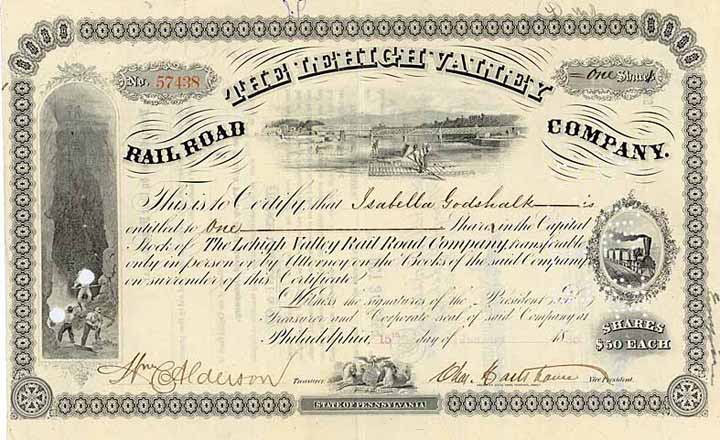 No. 57438
THE LEHIGH VALLEY
One Share
RAIL ROAD COMPANY.
This is to Certify, that Isabella Godshalk is
entitled to One Share in the Capital
Stock of The Lehigh Valley Rail Road Company, transferable
only in person or by Attorney on the Books of the said Company
on surrender of this Certificate.
Witness the signatures of the President
Treasurer and Corporate seal of said Company at
Philadelphia, 15th day of January 18
SHARES
$50 EACH
Wm C Alderson Treasurer
Chas. Hartshorne Vice President.
STATE OF PENNSYLVANIA